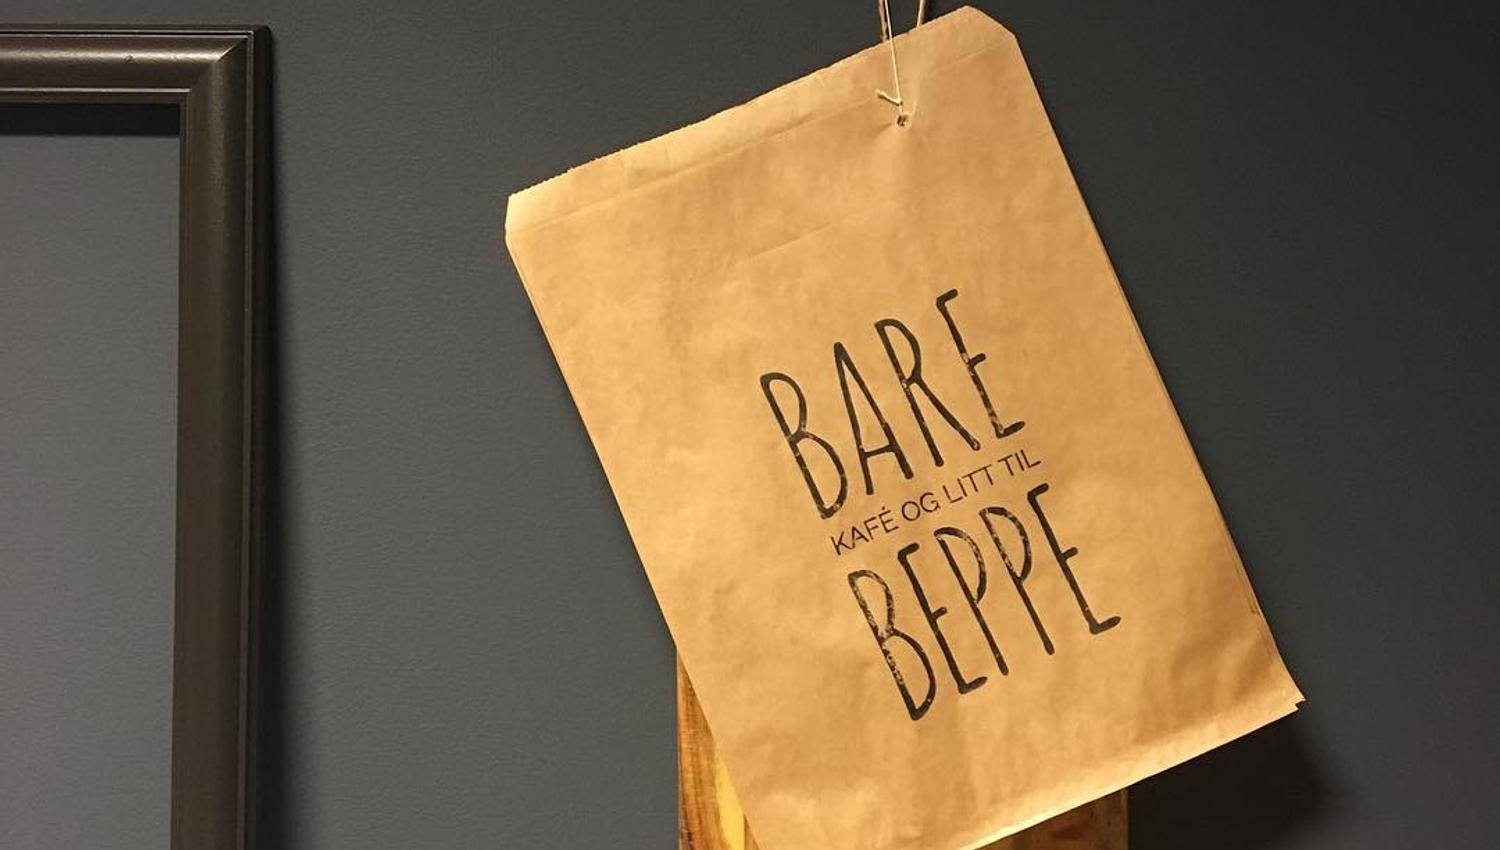 BARE
KAFÉ OG LITT TIL
BEPPE